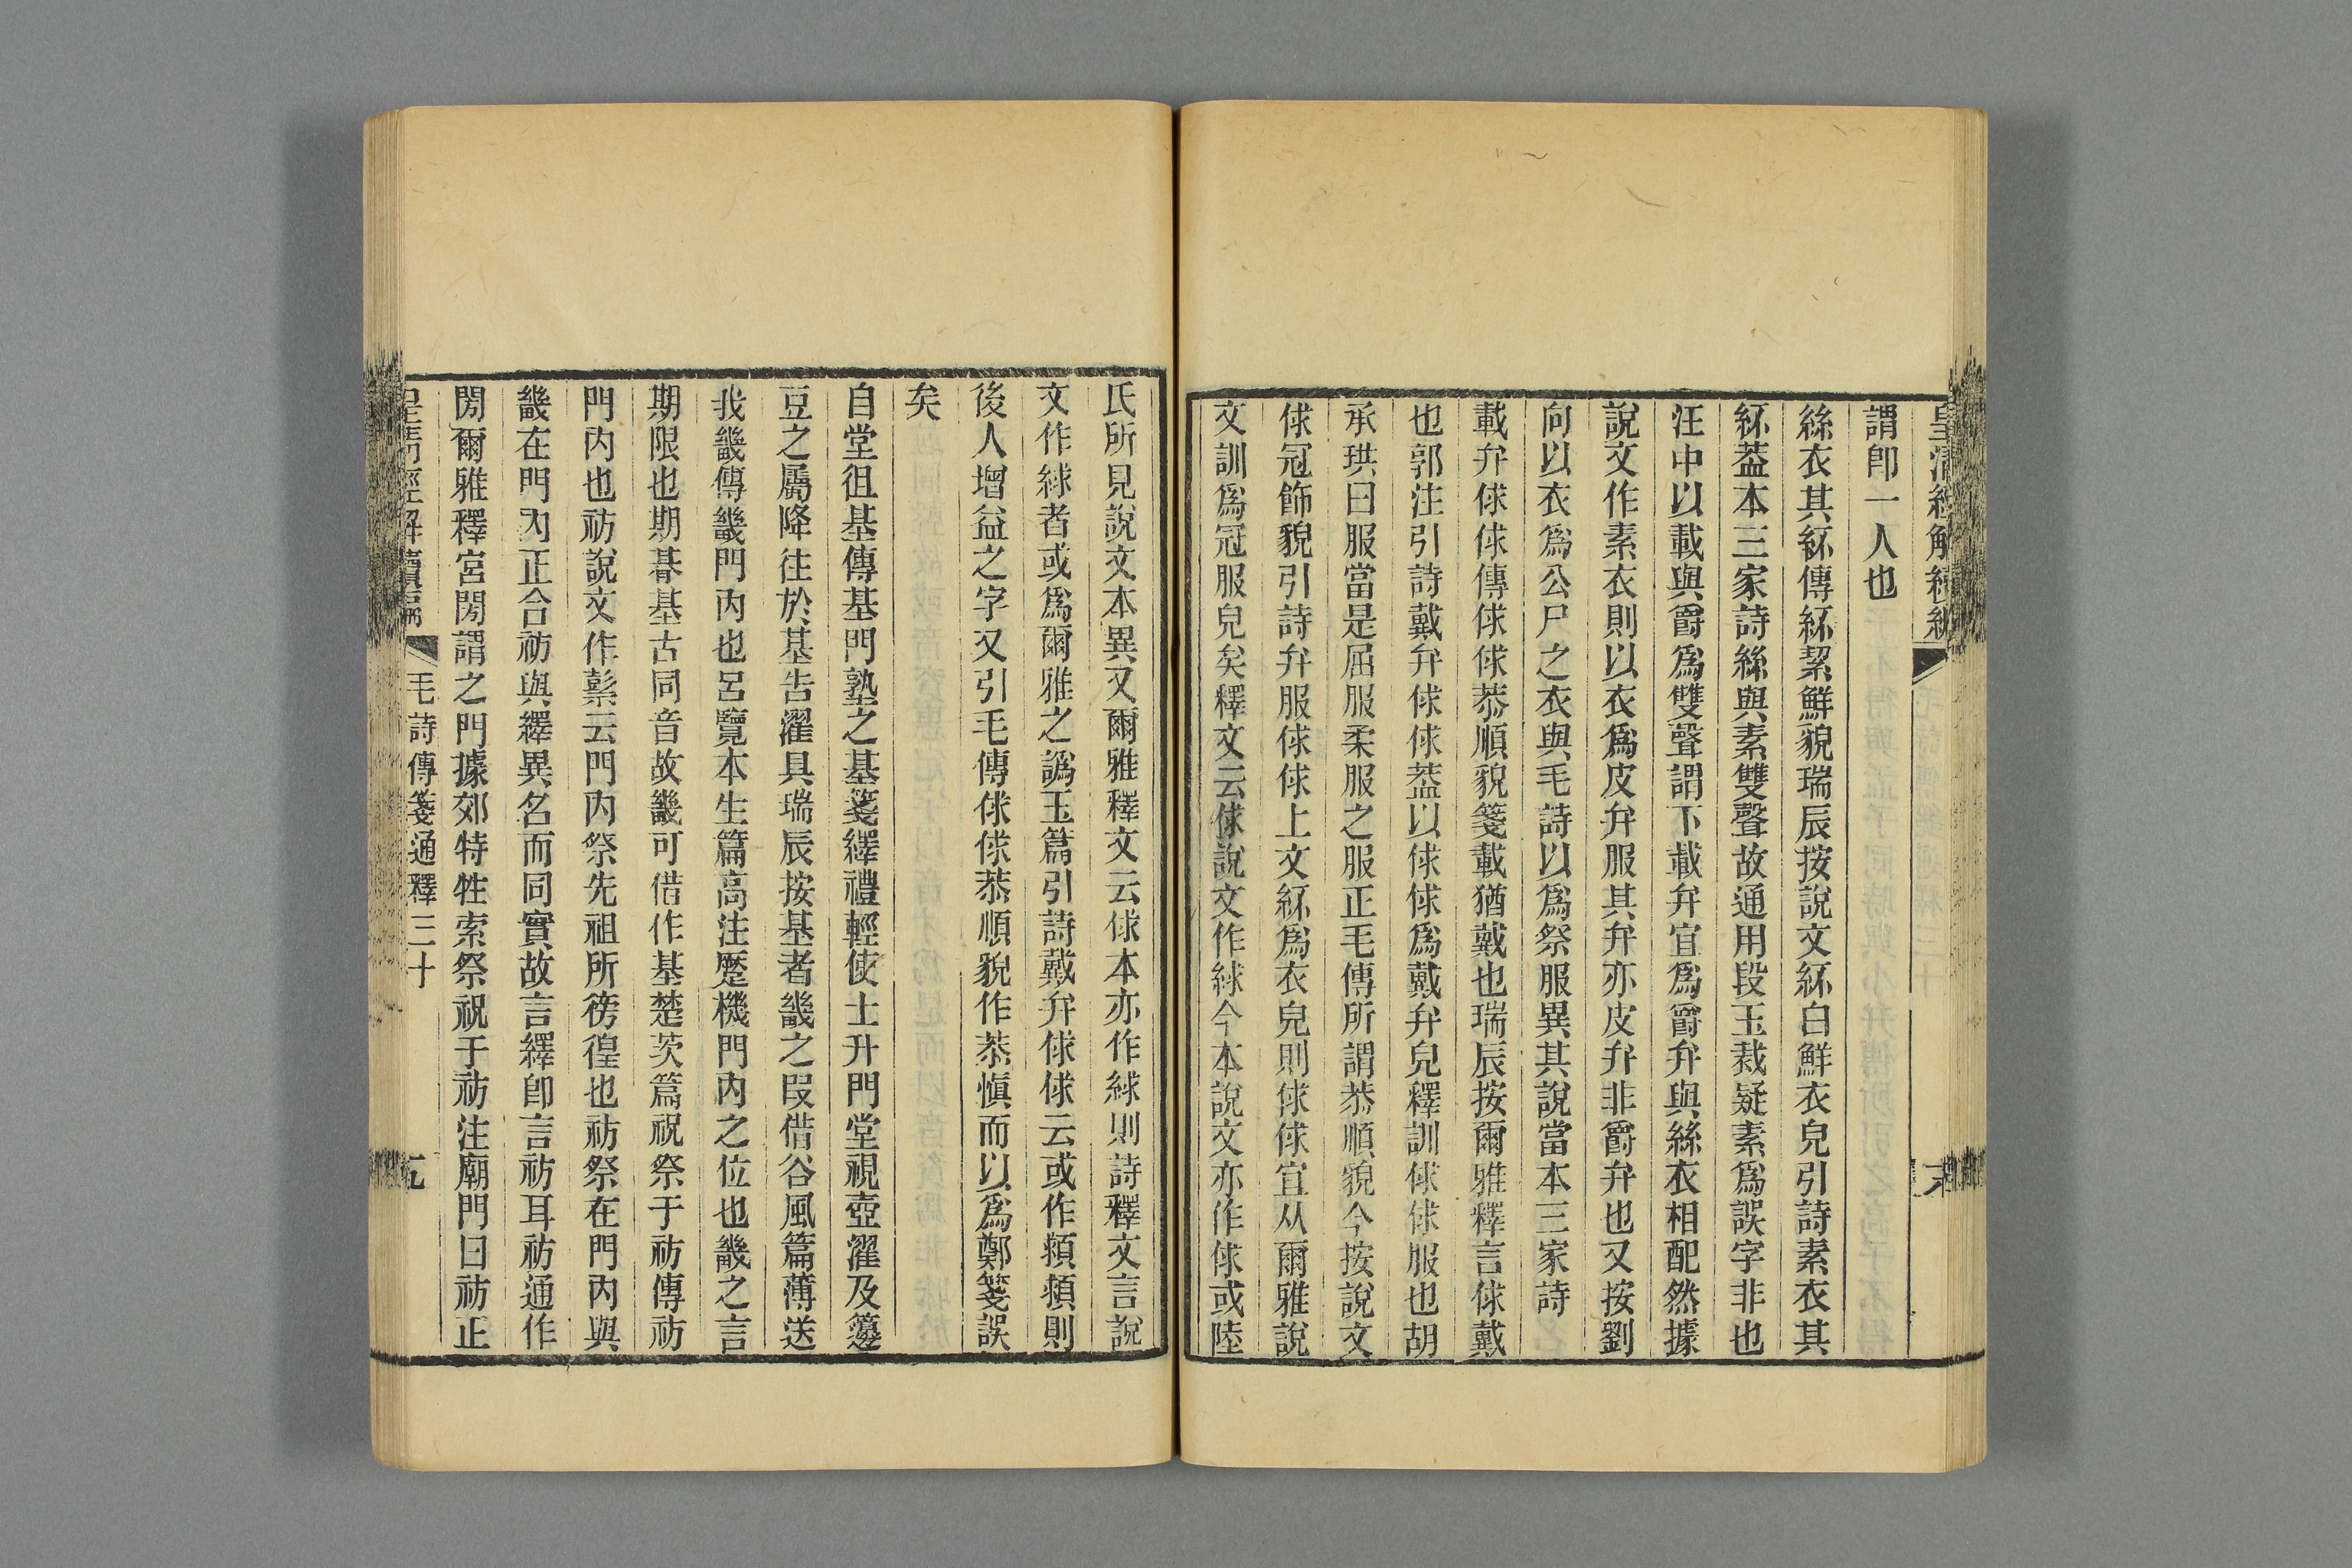 謂卽一人也
絲衣其紑傳紑絜鮮貌瑞辰按說文紑白鮮衣皃引詩素衣其
紑葢本三家詩絲與素雙聲故通用段玉裁疑素爲誤字非也
汪中以載與爵爲雙聲謂下載弁宜爲爵弁與絲衣相配然據
說文作素衣則以衣爲皮弁服其弁亦皮弁非爵弁也又按劉
向以衣爲公尸之衣與毛詩以爲祭服異其說當本三家詩
載弁俅俅傳俅俅恭順貌箋載猶戴也瑞辰按爾雅釋言俅戴
也郭注引詩戴弁俅俅葢以俅俅爲戴弁皃釋訓俅俅服也胡
承珙曰服當是屈服柔服之服正毛傳所謂恭順貌今按說文
俅冠飾貌引詩弁服俅俅上文紑爲衣皃則俅俅宜从爾雅說
文訓爲冠服皃矣釋文云俅說文作絿今本說文亦作俅或陸
氏所見說文本異又爾雅釋文云俅本亦作絿則詩釋文言說
文作絿者或爲爾雅之譌玉篇引詩戴弁俅俅云或作頮頮則
後人增益之字又引毛傳俅俅恭順貌作恭愼而以爲鄭箋誤
矣
自堂徂基傳基門塾之基箋繹禮輕使士升門堂視壺濯及籩
豆之屬降往於基告濯具瑞辰按基者畿之叚借谷風篇薄送
我畿傳畿門內也呂覽本生篇高注蹷機門內之位也畿之言
期限也期朞基古同音故畿可借作基楚茨篇祝祭于祊傳祊
門內也祊說文作𥛱云門內祭先祖所徬徨也祊祭在門內與
畿在門內正合祊與繹異名而同實故言繹卽言祊耳祊通作
閍爾雅釋宮閍謂之門據郊特牲索祭祝于祊注廟門曰祊正
皇淸經解續編 毛詩傳箋通釋三十 五